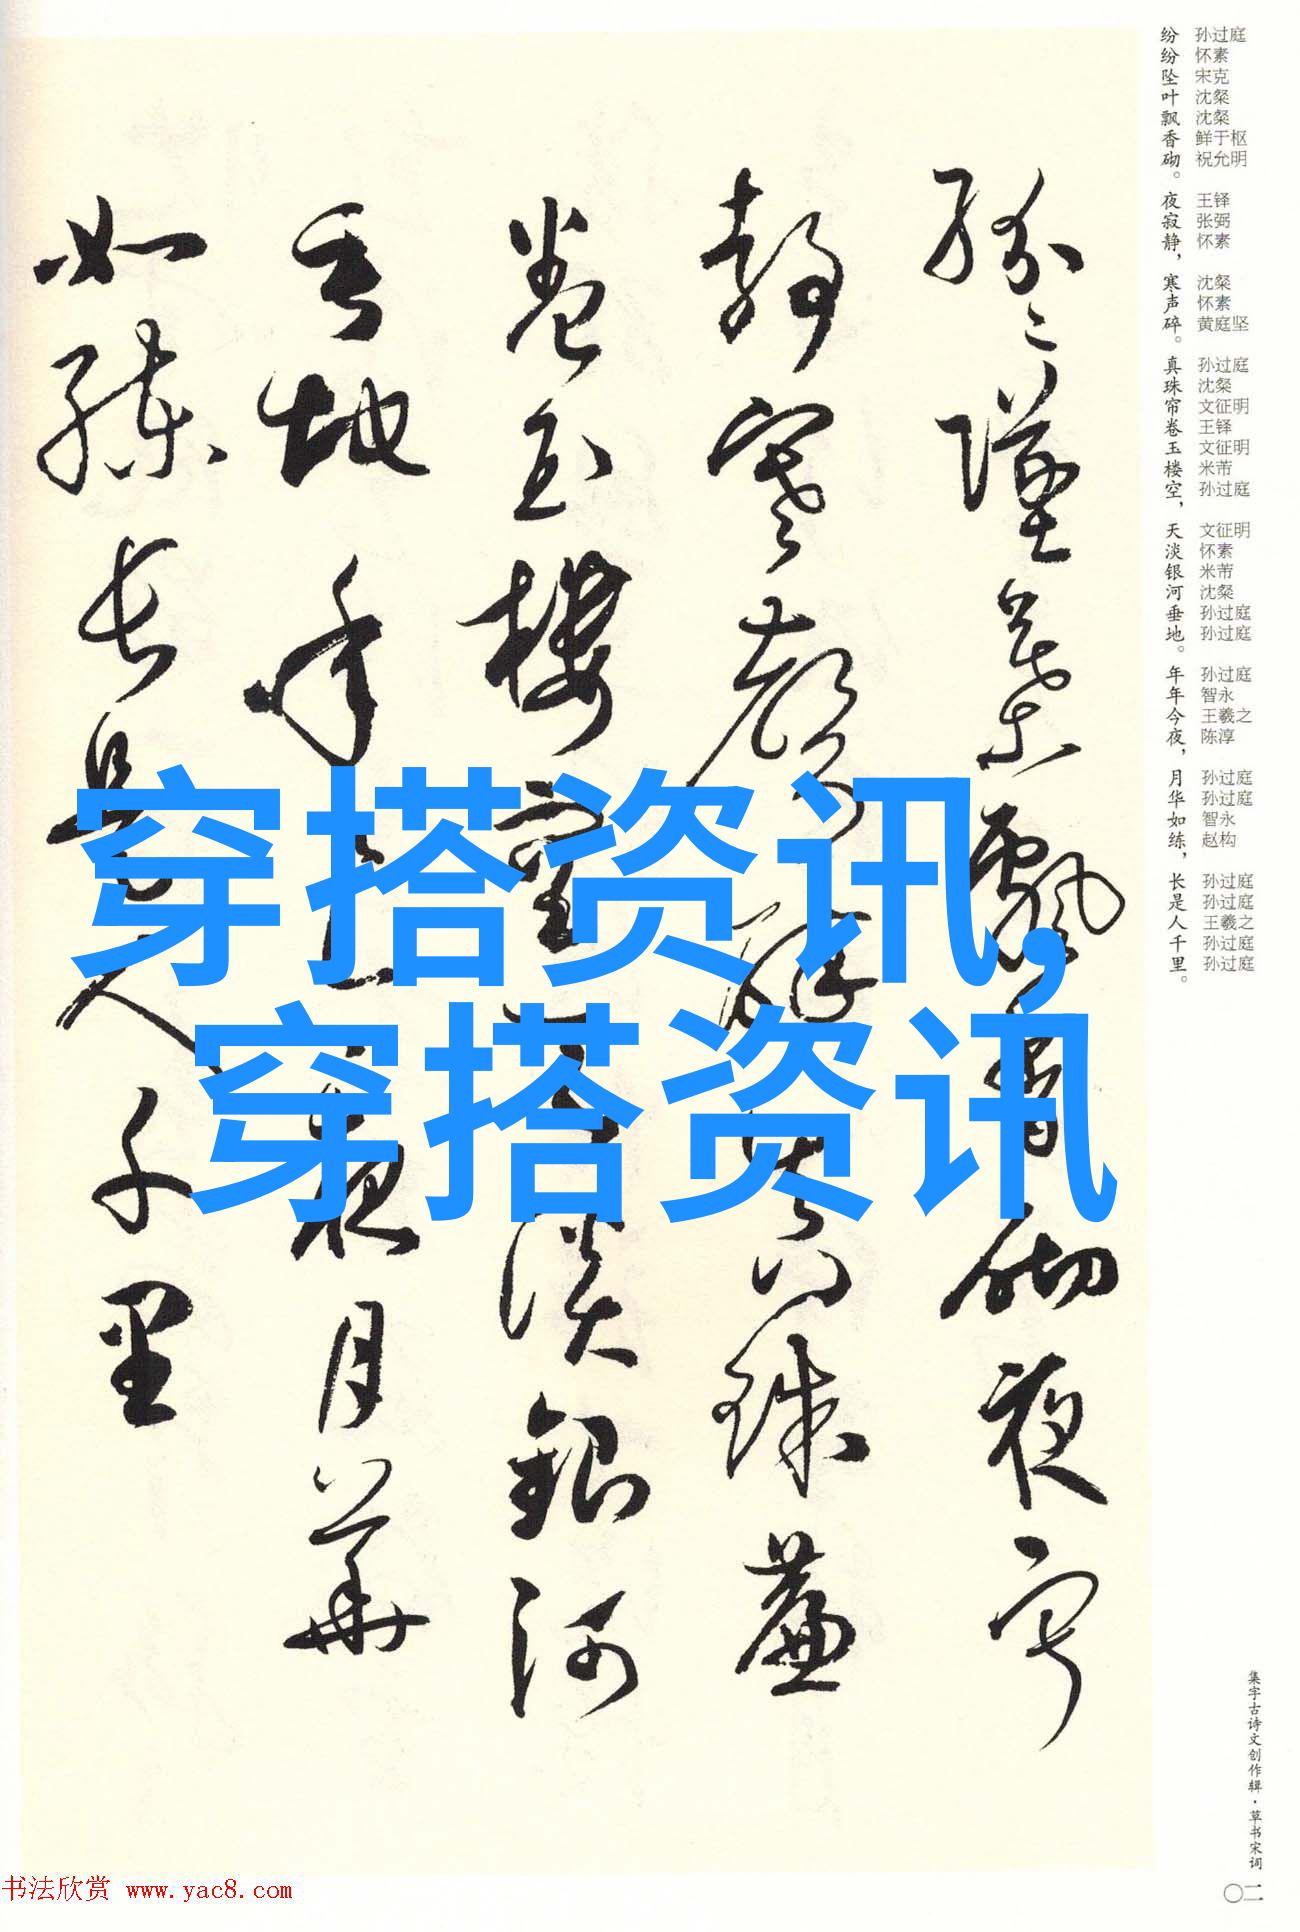 纷纷坠叶飘香砌。夜寂静，寒声碎。真珠帘卷玉楼空，天淡银河垂地。年年今夜，月华如练，长是人千里。
孙过庭 怀素 宋克 沈粲 沈粲 鲜于枢 祝允明 王铎 张弼 怀素 沈粲 怀素 黄庭坚 孙过庭 沈粲 文征明 王铎 文征明 米芾 孙过庭 文征明 怀素 米芾 沈粲 孙过庭 孙过庭 孙过庭 智永 王羲之 陈淳 孙过庭 孙过庭 智永 赵构 孙过庭 孙过庭 王羲之 孙过庭 孙过庭
纷纷坠叶飘香砌夜寂
静寒声碎真珠帘
卷玉楼空天淡银河
垂地年年今夜月华
如练长是人千里
穿搭资讯,
穿搭资讯
集字古诗文创作辑·草书宋词
〇二
书法欣赏 www.yac8.com